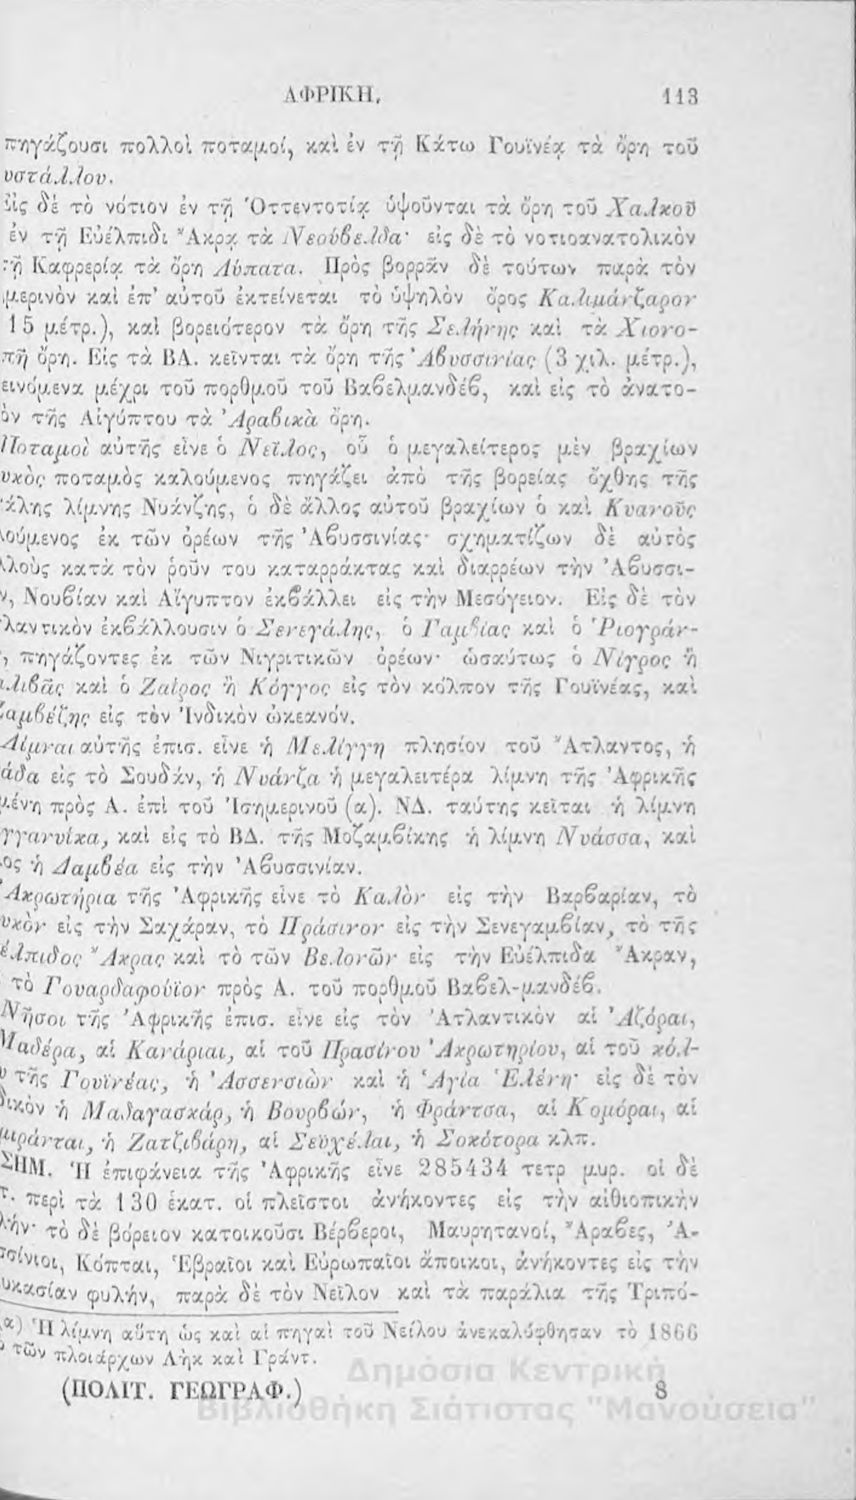 ΑΦΡΙΚΗ, 113
πηγάζουσι πολλοὶ ποταμοί, καὶ ἐν τῇ Κάτω Γουϊνέᾳ τὰ ὄρη τοῦ
υστάλλου.
ἰς δὲ τὸ νότιον ἐν τῇ Ὀττεντοτίᾳ ὑψοῦνται τὰ ὄρη τοῦ Χαλκοῦ
ἐν τῇ Εὐέλπιδι Ἄκρᾳ τὰ Νεούβελδα· εἰς δὲ τὸ νοτιοανατολικὸν
τῇ Καφρερίᾳ τὰ ὄρη Λύπατα. Πρὸς βορρᾶν δὲ τούτων παρὰ τὸν
μερινὸν καὶ ἐπ' αὐτοῦ ἐκτείνεται τὸ ὑψηλὸν ὄρος Καλιμάνζαρον
15 μέτρ.), καὶ βορειότερον τὰ ὄρη τῆς Σελήνης καὶ τὰ Χιονο-
πῆ ὄρη. Εἰς τὰ ΒΑ. κεῖνται τὰ ὄρη τῆς Ἀβυσσινίας (3 χιλ. μέτρ.),
εινόμενα μέχρι τοῦ πορθμοῦ τοῦ Βαβελμανδέβ, καὶ εἰς τὸ ἀνατο-
ὸν τῆς Αἰγύπτου τὰ Ἀραβικὰ ὄρη.
Ποταμοὶ αὐτῆς εἶνε ὁ Νεῖλος, οὗ ὁ μεγαλείτερος μὲν βραχίων
υκὸς ποταμὸς καλούμενος πηγάζει ἀπὸ τῆς βορείας ὄχθης τῆς
άλης λίμνης Νυάνζης, ὁ δὲ ἄλλος αὐτοῦ βραχίων ὁ καὶ Κυανοῦς
λούμενος ἐκ τῶν ὀρέων τῆς Ἀβυσσινίας· σχηματίζων δὲ αὐτὸς
λλοὺς κατὰ τὸν ῥοῦν του καταρράκτας καὶ διαρρέων τὴν Ἀβυσσι-
ν, Νουβίαν καὶ Αἴγυπτον ἐκβάλλει εἰς τὴν Μεσόγειον. Εἰς δὲ τὸν
λαντικὸν ἐκβάλλουσιν ὁ Σενεγάλης, ὁ Γαμβίας καὶ ὁ Ῥιογράν-
, πηγάζοντες ἐκ τῶν Νιγριτικῶν ὀρέων· ὡσαύτως ὁ Νίγρος ἢ
λιβᾶς καὶ ὁ Ζαΐρος ἢ Κόγγος εἰς τὸν κόλπον τῆς Γουϊνέας, καὶ
αμβέζης εἰς τὸν Ἰνδικὸν ὠκεανόν.
Λίμναι αὐτῆς ἐπισ. εἶνε ἡ Μελίγγη πλησίον τοῦ Ἄτλαντος, ἡ
άδα εἰς τὸ Σουδάν, ἡ Νυάνζα ἡ μεγαλειτέρα λίμνη τῆς Ἀφρικῆς
μένη πρὸς Α. ἐπὶ τοῦ Ἰσημερινοῦ (α). ΝΔ. ταύτης κεῖται ἡ λίμνη
γγανίκα, καὶ εἰς τὸ ΒΔ. τῆς Μοζαμβίκης ἡ λίμνη Νυάσσα, καὶ
ος ἡ Δαμβέα εἰς τὴν Ἀβυσσινίαν.
Ἀκρωτήρια τῆς Ἀφρικῆς εἶνε τὸ Καλὸν εἰς τὴν Βαρβαρίαν, τὸ
υκὸν εἰς τὴν Σαχάραν, τὸ Πράσινον εἰς τὴν Σενεγαμβίαν, τὸ τῆς
έλπιδος Ἄκρας καὶ τὸ τῶν Βελονῶν εἰς τὴν Εὐέλπιδα Ἄκραν,
τὸ Γουαρδαφούϊον πρὸς Α. τοῦ πορθμοῦ Βαβελ-μανδέβ.
Νῆσοι τῆς Ἀφρικῆς ἐπισ. εἶνε εἰς τὸν Ἀτλαντικὸν αἱ Ἀζόραι,
Μαδέρα, αἱ Κανάριαι, αἱ τοῦ Πρασίνου Ἀκρωτηρίου, αἱ τοῦ κόλ-
υ τῆς Γουϊνέας, ἡ Ἀσσενσιὼν καὶ ἡ Ἁγία Ἑλένη· εἰς δὲ τὸν
δικὸν ἡ Μαδαγασκάρ, ἡ Βουρβών, ἡ Φράντσα, αἱ Κομόραι, αἱ
μιράνται, ἡ Ζατζιβάρη, αἱ Σεϋχέλαι, ἡ Σοκότορα κλπ.
ΣΗΜ. Ἡ ἐπιφάνεια τῆς Ἀφρικῆς εἶνε 285434 τετρ μυρ. οἱ δὲ
τ. περὶ τὰ 130 ἑκατ. οἱ πλεῖστοι ἀνήκοντες εἰς τὴν αἰθιοπικὴν
λήν· τὸ δὲ βόρειον κατοικοῦσι Βέρβεροι, Μαυρητανοί, Ἄραβες, Ἀ-
σσίνιοι, Κόπται, Ἑβραῖοι καὶ Εὐρωπαῖοι ἄποικοι, ἀνήκοντες εἰς τὴν
υκασίαν φυλήν, παρὰ δὲ τὸν Νεῖλον καὶ τὰ παράλια τῆς Τριπό-
α) Ἡ λίμνη αὕτη ὡς καὶ αἱ πηγαὶ τοῦ Νείλου ἀνεκαλύφθησαν τὸ 1866
τῶν πλοιάρχων Λὴκ καὶ Γράντ.
(ΠΟΛΙΤ. ΓΕΩΓΡΑΦ.) 8
Δημόσια Κεντρική
Βιβλιοθήκη Σιάτιστας "Μανούσεια"